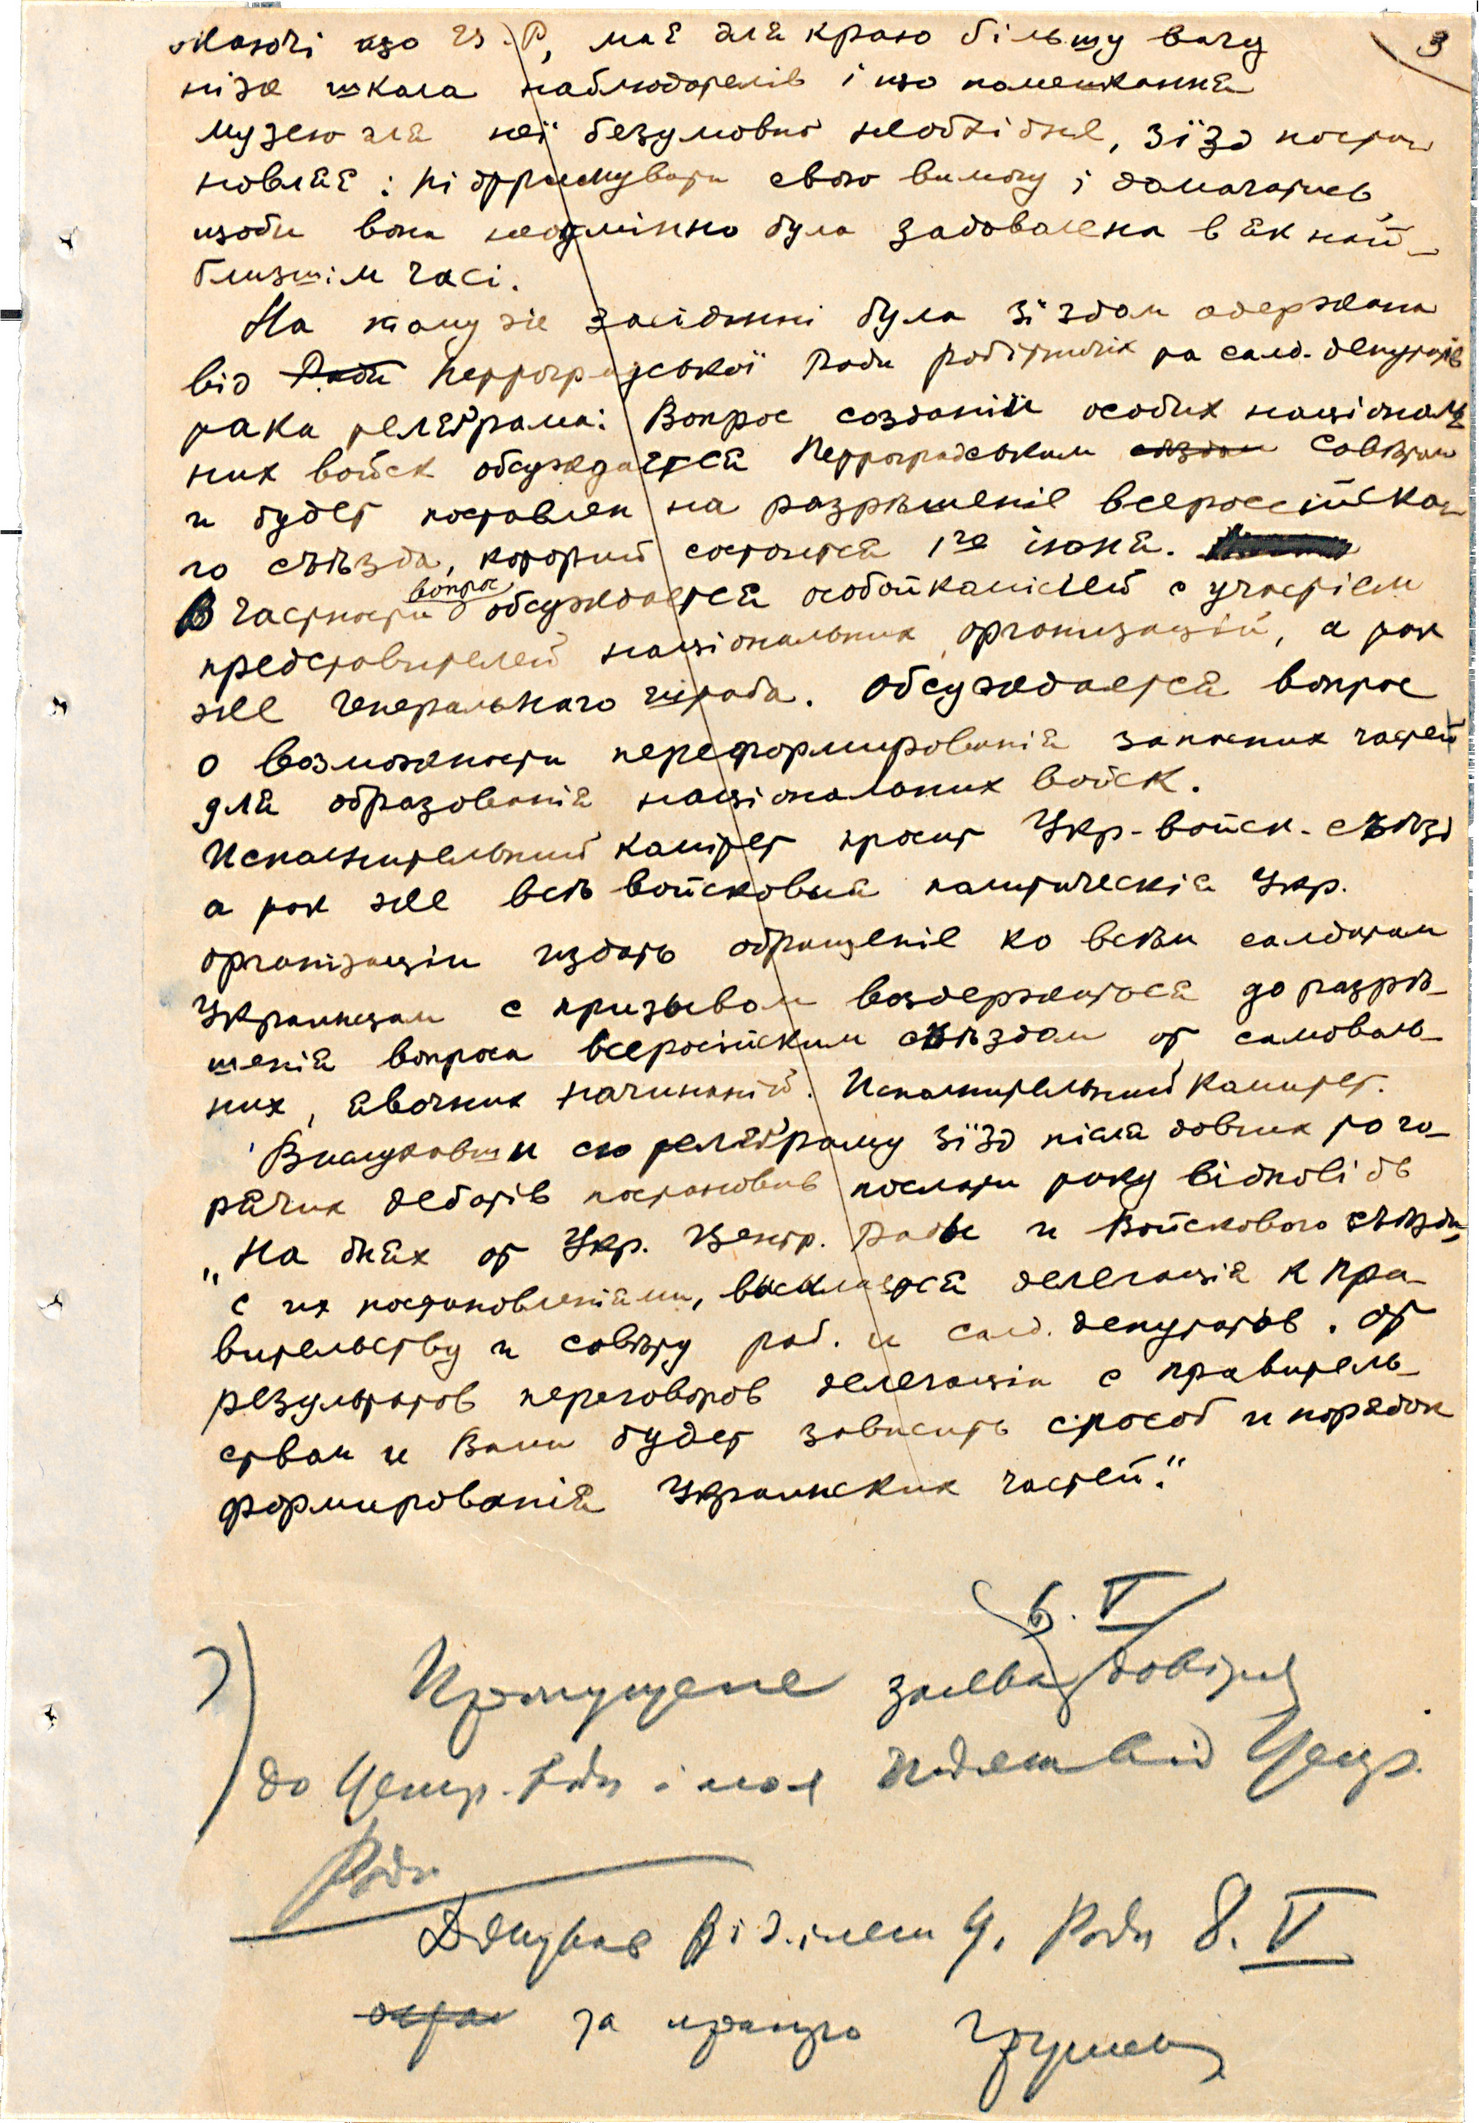 3
жаючі що Ц.Р, має для краю більшу вагу
ніж школа наблюдателів і що помешкання
музею для неї безумовно необхідне, зїзд постан
новляє: підтримувати свою вимогу і домагатись
щоби вона неодмінно була задоволена в як най-
близшім часі.
На тому же засіданні була зїздом одержана
від Ради Петроградської Ради робітничих та салд. депутатів
така телєграма: Вопрос созданій особих національ
них войск обсуждается Петроградським съездом Совѣтом
и будет поставлен на разрѣшеніе всеросійска-
го съѣзда, который состоится 1го іюня.
В частности вопрос обсуждается особой комісіей с участіем
представителей національних организацій, а так
же генеральнаго штаба. Обсуждается вопрос
о возможности переформированія запасних частей
для образованія національних войск.
Исполнительний комітет просит Укр-войск-съѣзд
а так же всѣ войсковыя политическія Укр.
організаціи издать обращеніе ко всѣм солдатам
Украинцам с призывом воздержатося до разрѣ-
шенія вопроса всеросійским съѣздом от самоволь-
них, явочних начинаній. Исполнительний Комитет.
Вислухавши сю телєграму зїзд після довгих та го-
рячих дебатів постановив послати таку відповідь
"На днях от Укр. Центр. Рады и Войскового съѣзда,
с их постановленіями, висилается делегація к Пра-
вительству и совѣту раб. и салд. депутатов. От
результатов переговоров делегаціи с правитель-
ством и Вами будет зависить способ и порядок
формированія Украинских частей."
6. V
?) Пропущене заява довіря
до Центр. Ради і моя подяка від Центр.
Ради
Дякував від імени Ц. Ради 8. V
за працю Грушев